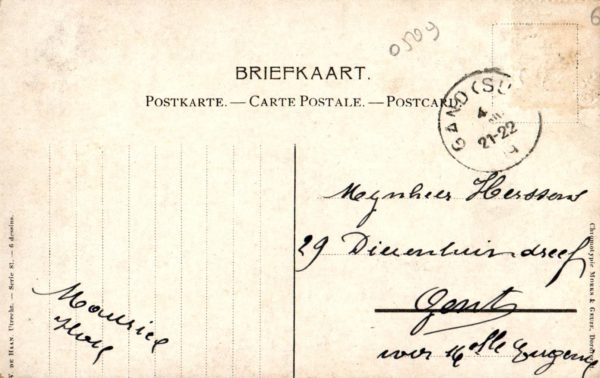 0509
6
BRIEFKAART.
POSTKARTE. — CARTE POSTALE. — POSTCARD.
GAND (SU
4
21-22
Mynheer Herssens
29 Dierentuindreef
Gent
voor Mselle Eugenie
Maurice
W. DE HAAN, Utrecht. — Serie 81. — 6 dessins.
Chromotypie MORKS & GEUZE, Dordrecht